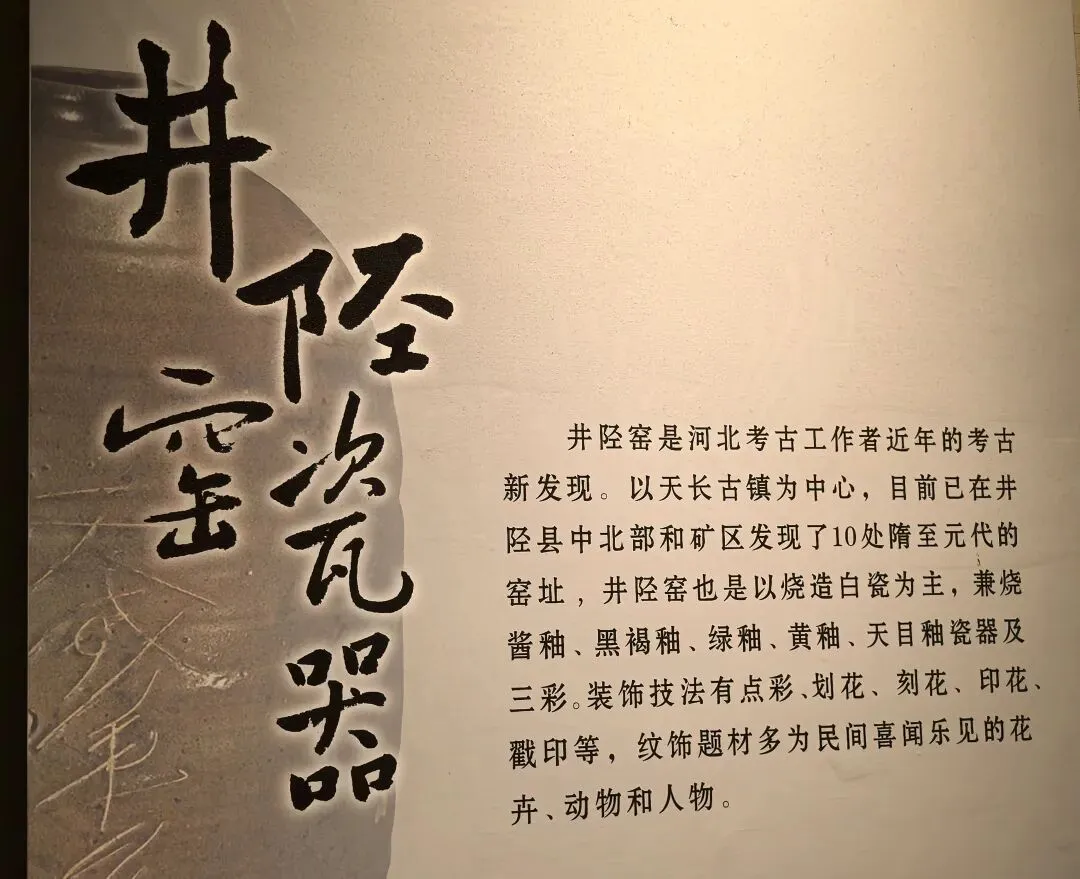 井陉窑瓷器
井陉窑是河北考古工作者近年的考古
新发现。以天长古镇为中心，目前已在井
陉县中北部和矿区发现了10处隋至元代的
窑址，井陉窑也是以烧造白瓷为主，兼烧
酱釉、黑褐釉、绿釉、黄釉、天目釉瓷器及
三彩。装饰技法有点彩、划花、刻花、印花、
戳印等，纹饰题材多为民间喜闻乐见的花
卉、动物和人物。